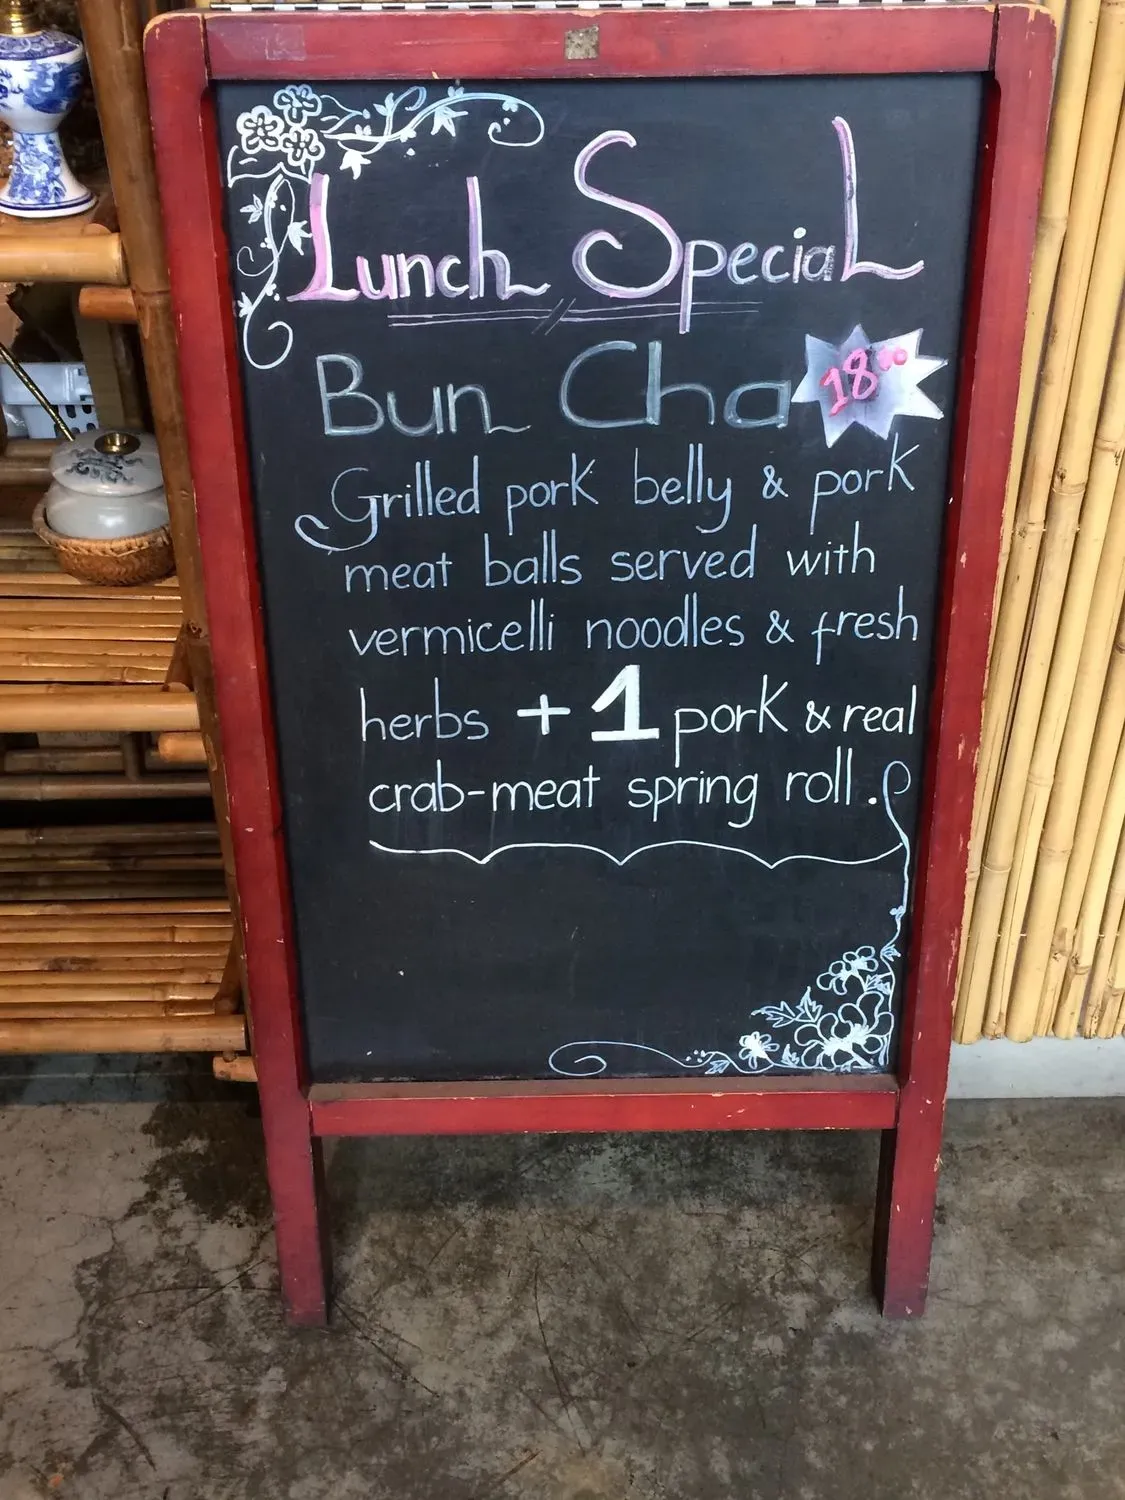 Lunch Special
Bun Cha 18.00
Grilled pork belly & pork
meat balls served with
vermicelli noodles & fresh
herbs + 1 pork & real
crab-meat spring roll.